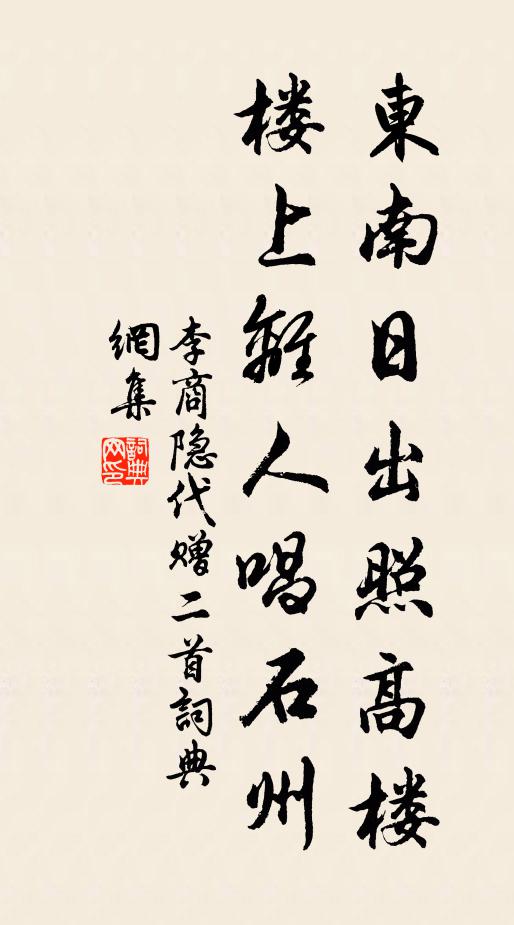 東南日出照高楼
楼上離人唱石州
李商隐代赠二首詞典
網集
詞典
网印